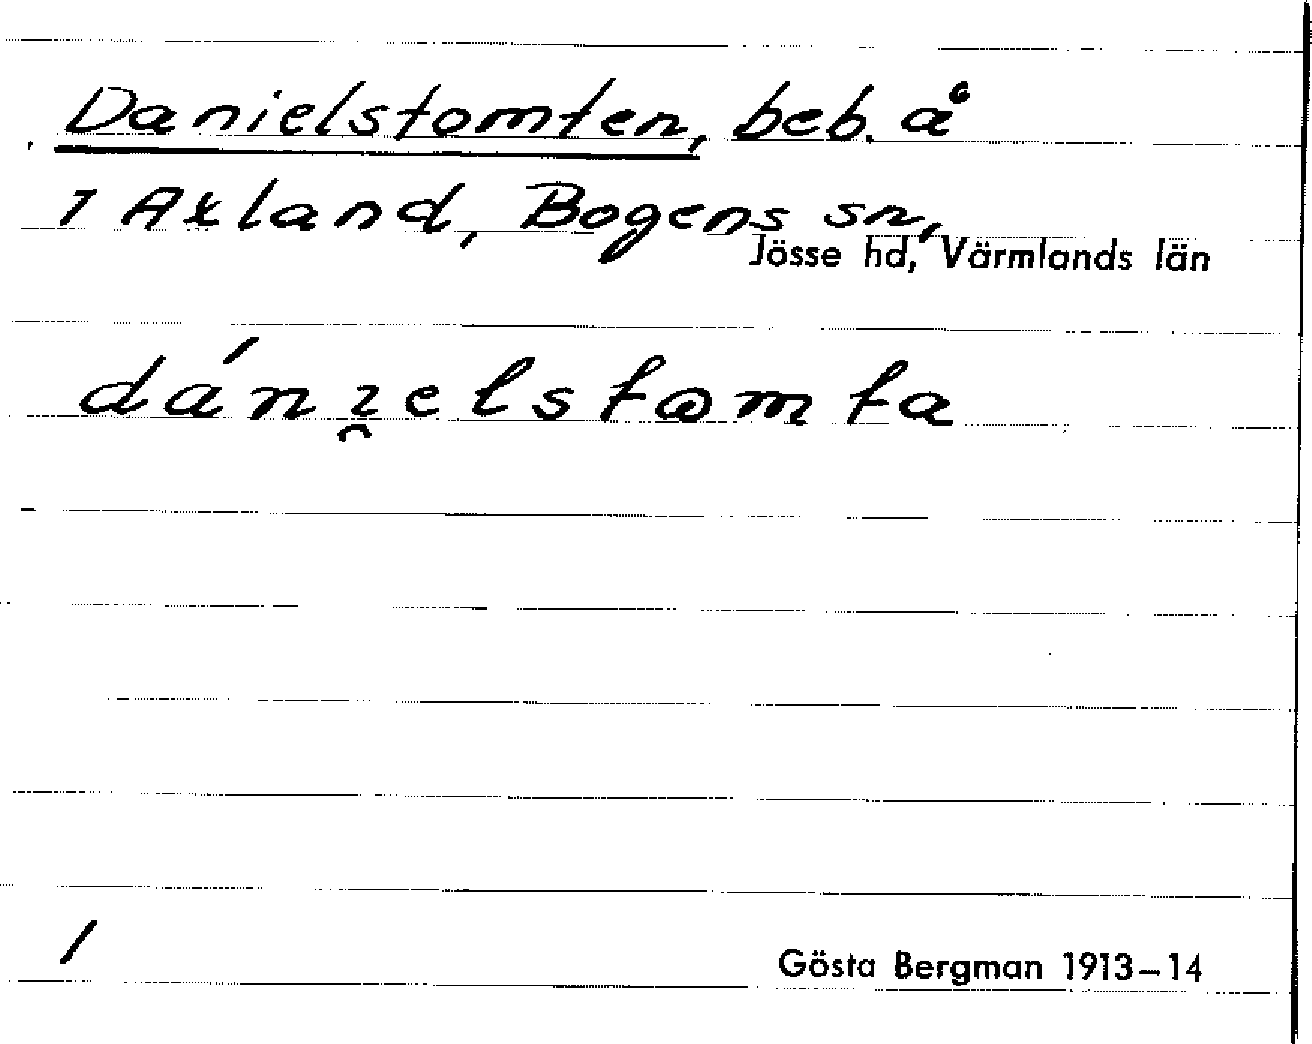 Danielstomten, beb. å
1 Axland, Bogens sn,
Jösse hd, Värmlands län
dánɪ̯elstɷmta
/
Gösta Bergman 1913–14